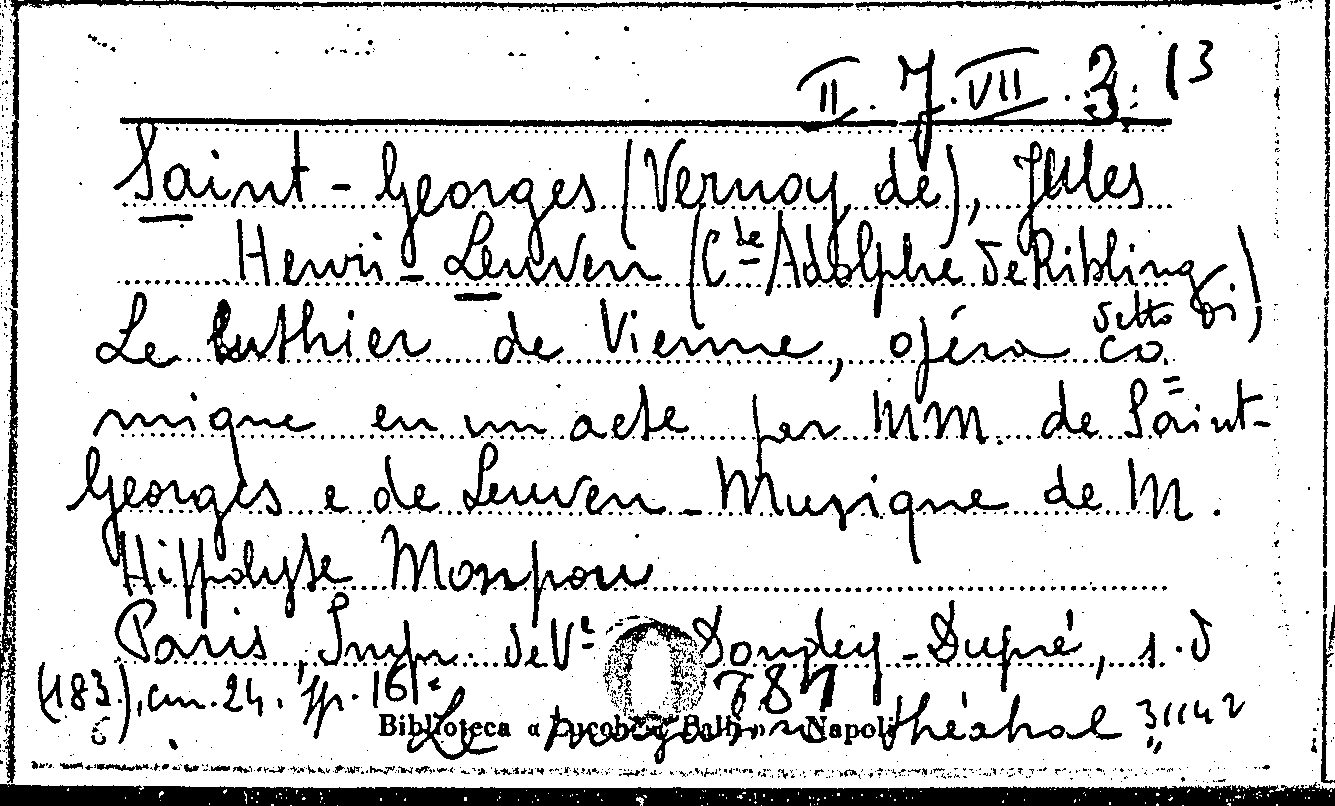 II. 7. VII. 3. 13
Saint-Georges (Vernoy de), Jules
Henri - Leuven (Cte Adolphe de Ribbing
detto di)
Le luthier de Vienne, opéra co=
mique en un acte par MM. de Saint-
Georges e de Leuven - Musique de M.
Hippolyte Monpou
Paris, Imp. de Ve Dondey-Dupré, s.d
(183.), cm. 24. pp. 16.
6
Le théatral 31142
Biblioteca « Lucchesi Palli » Napoli